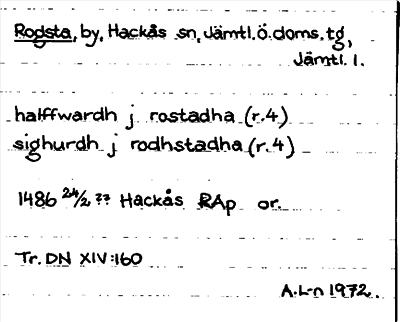 Rogsta, by, Hackås sn, Jämtl. ö. doms. tg,
Jämtl. l.
halffwardh j rostadha (r.4)
sighurdh j rodhstadha (r.4)
1486 24/2 ?? Hackås RAp or.
Tr. DN XIV:160
A.L-n 1972.